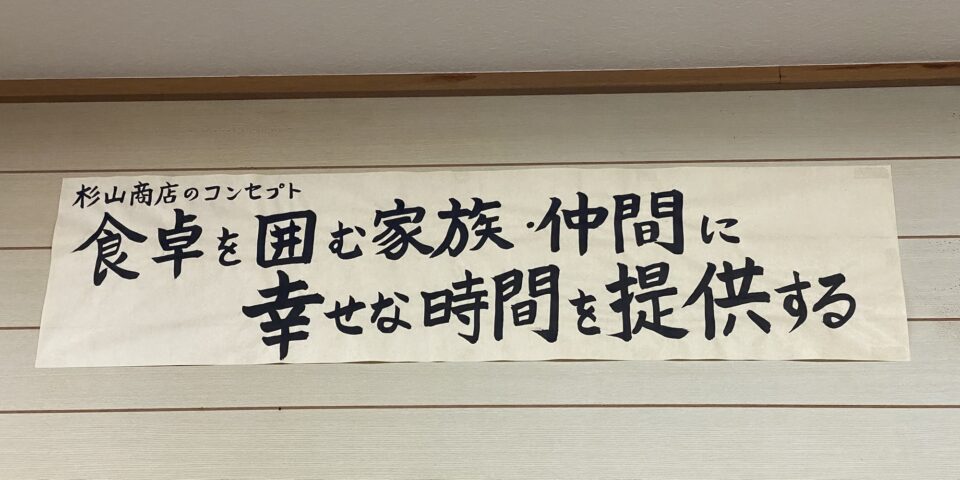 杉山商店のコンセプト
食卓を囲む家族・仲間に
幸せな時間を提供する